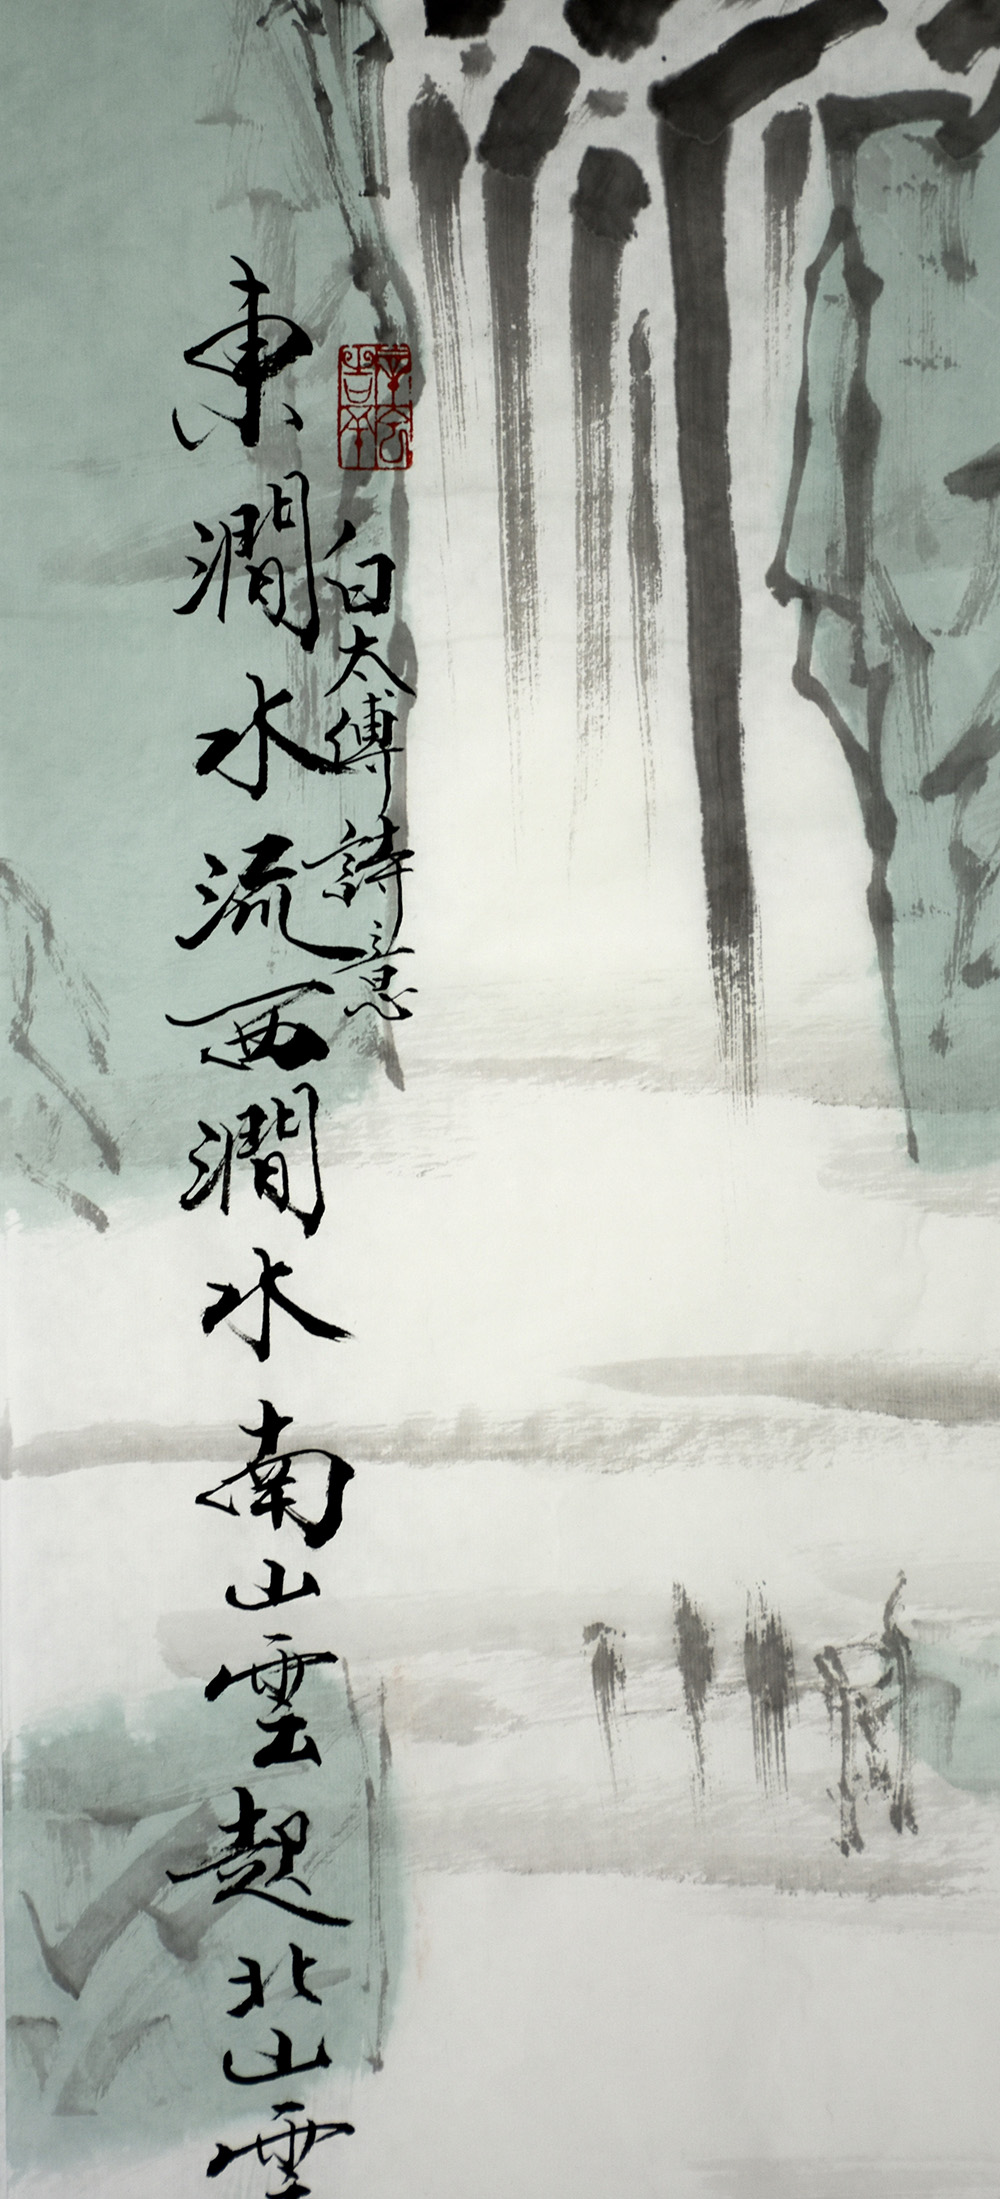 白太傅詩意
東澗水流西澗水南山雲起北山雲